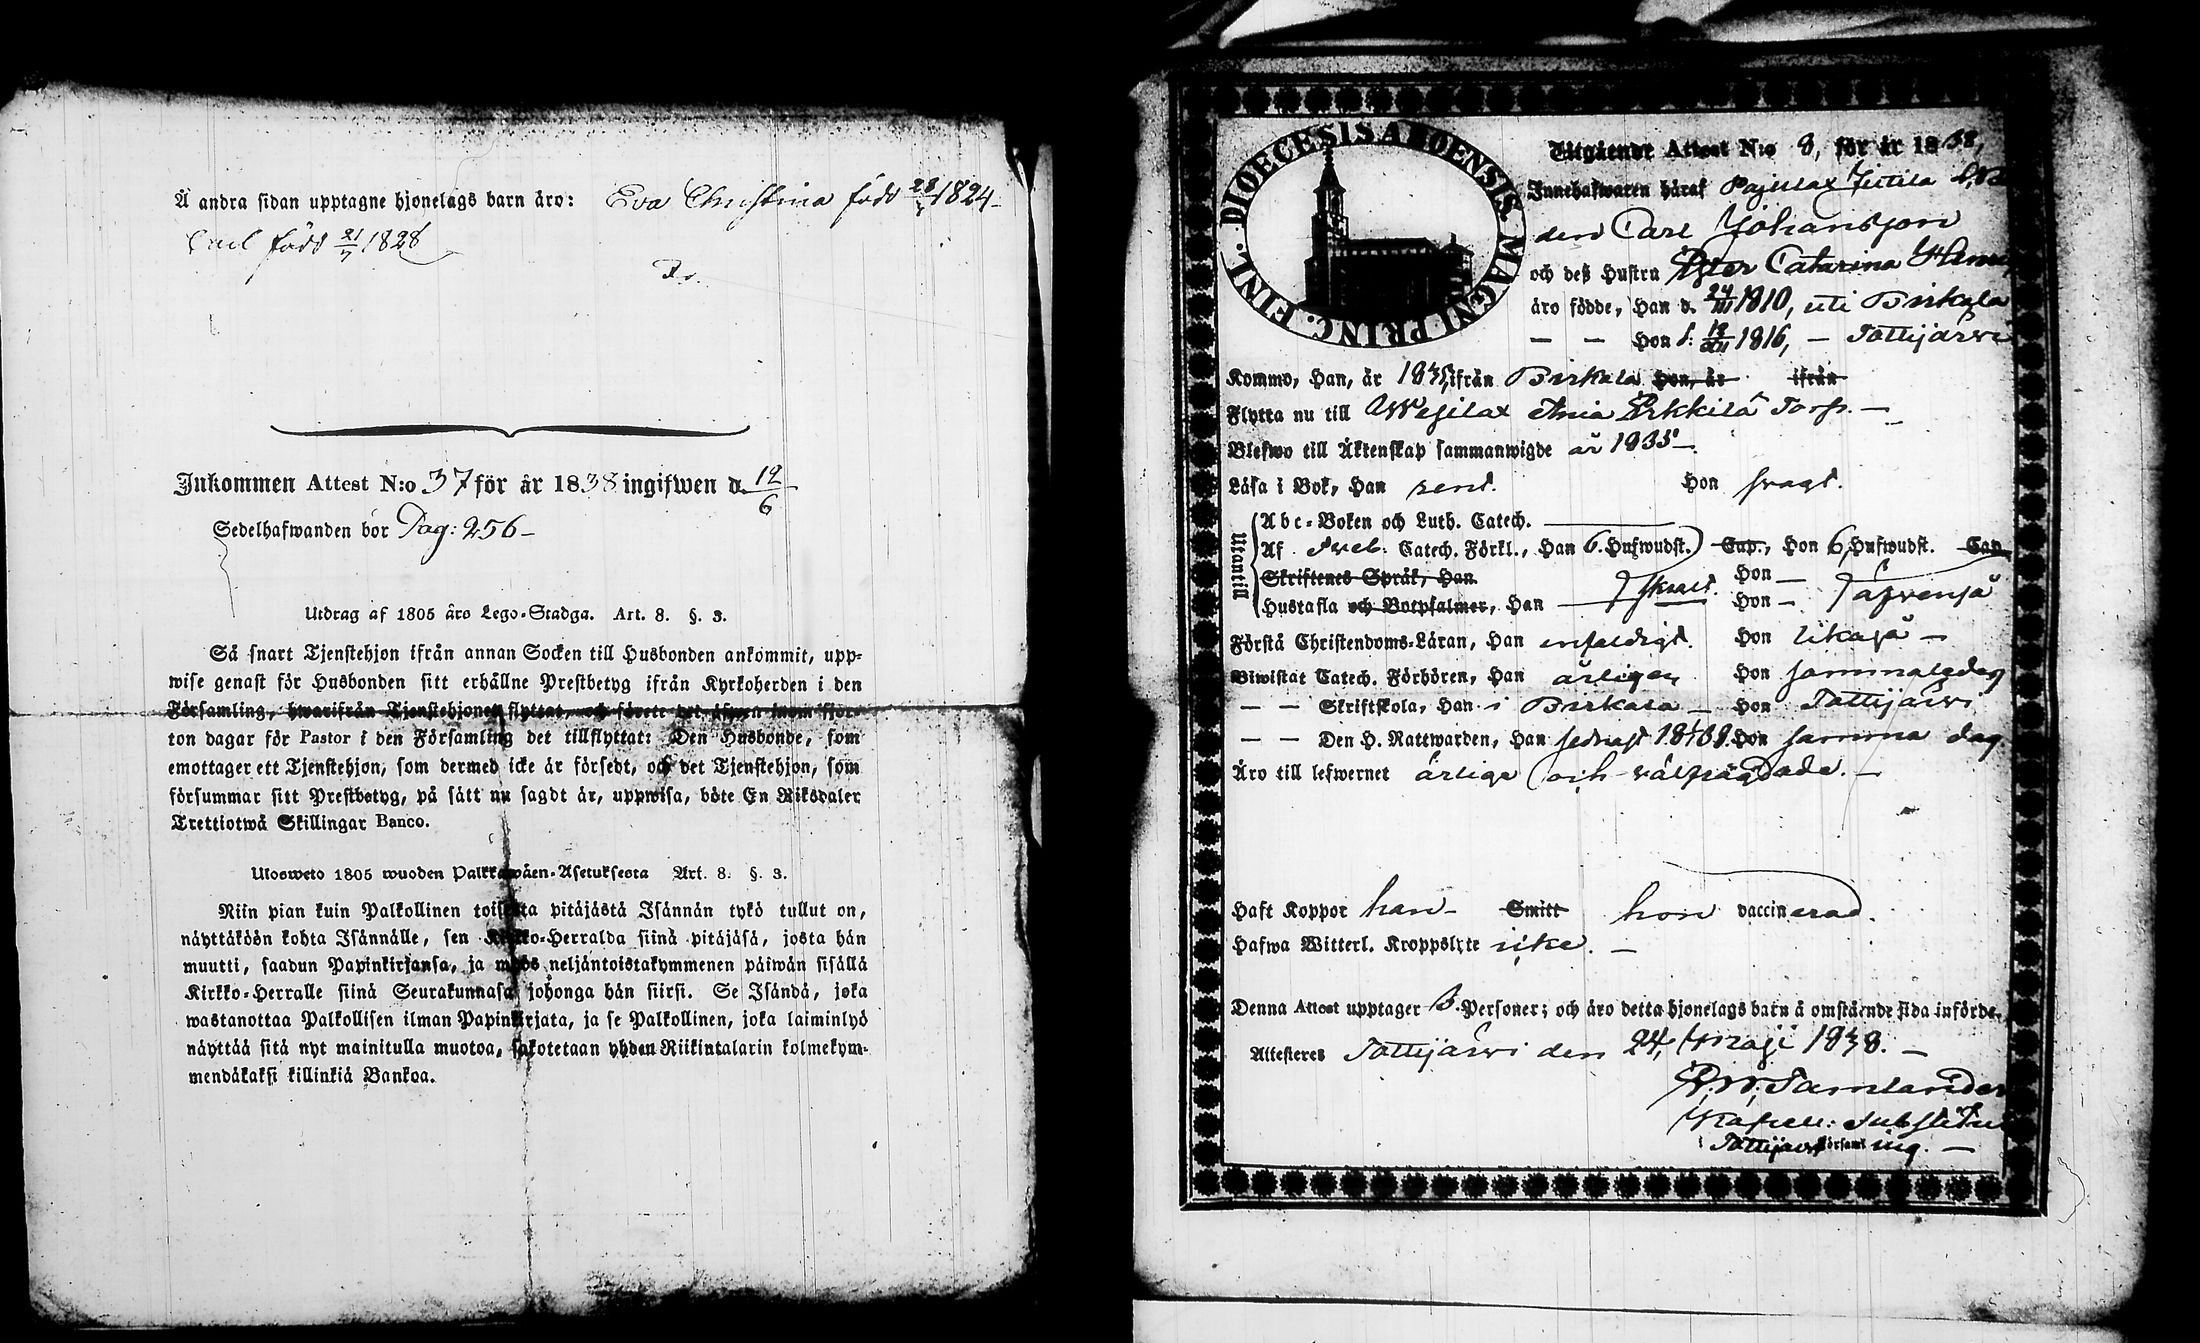 Å andra sidan upptagne hjonelags barn äro: Eva Christina född 1824
född 21/7 1828
Inkommen Attest N:o 37 för år 1838 ingifwen d. 12/6
Sedelhafwanden bör Pag: 256
Utdrag af 1805 års Lego-Stadga. Art. 8. §. 3.
Så snart Tjenstehjon ifrån annan Socken till Husbonden ankommit, upp-
wise genast för Husbonden sitt erhållne Prestbetyg ifrån Kyrkoherden i den
Församling, hwarifrån Tjenstehjonet flyttat, och förete det äfwen inom fjor-
ton dagar för Pastor i den Församling det tillflyttat: Den Husbonde, som
emottager ett Tjenstehjon, som dermed icke är försedt, och det Tjenstehjon, som
försummar sitt Prestbetyg, på sätt nu sagdt är, uppwisa, böte En Riksdaler
Trettiotwå Skillingar Banco.
Ulosweto 1805 wuoden Palkkawäen-Asetuksesta Art. 8. §. 3.
Niin pian kuin Palkollinen toisesta pitäjästä Isännän tykö tullut on,
näyttäköön kohta Isännälle, sen Kirkko-Herralda siinä pitäjäsä, josta hän
muutti, saadun Papinkirjansa, ja myös neljäntoistakymmenen päiwän sisällä
Kirkko-Herralle siinä Seurakunnasa johonga hän siirsi. Se Isändä, joka
wastanottaa Palkollisen ilman Papinkirjata, ja se Palkollinen, joka laiminlyö
näyttää sitä nyt mainitulla muotoa, sakotetaan yhden Riikintalarin kolmekym-
mendäkaksi killinkiä Bankoa.
DIOECESIS ABOENSIS MAGNI PRINC. FINL.
Utgående Attest N:o 8, för år 1838,
Innehafwaren häraf
den Carl Johansson
och deß Hustru Catarina
äro födde, Han d. 24/III 1810, uti Birkala
— — Hon d. 1816, — Tottijärvi
Kommo, Han, år ifrån Birkala Hon, år ifrån
Flytta nu till Wesilax Erkkilä Torp. —
Blefwo till Äktenskap sammanwigde år 1835 —
Läsa i Bok, Han rent. Hon swagt.
Utantill
Abc-Boken och Luth. Catech. —
Af Sveb. Catech. Förkl., Han 6. Hufwudst. Cap., Hon 6 Hufwudst. Cap.
Skriftenes Språk, Han Hon —
Hustafla och Botpsalmer, Han — Hon — äfvenså
Förstå Christendoms-Läran, Han enfaldigt. Hon likaså —
Biwistat Catech. Förhören, Han årligen Hon
— — Skriftskola, Han i Birkala — Hon Tottijärvi
— — Den H. Nattwarden, Han sednast Hon samma dag.
Äro till lefwernet ärliga och välfrägdade. —
Haft Koppor han — Smitt hon vaccinerad.
Hafwa Witterl. Kroppslyte icke. —
Denna Attest upptager Personer; och äro detta hjonelags barn å omstående sida införde.
Attesteres Tottijärvi den 24 Maji 1838. —
Tamlander
Substitut
i Tottijärvi Församling. —